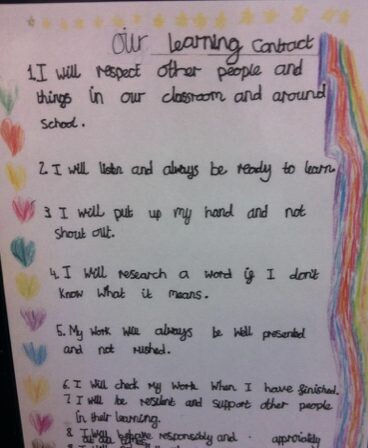 Our learning contract
1. I will respect other people and
things in our classroom and around
school.
2. I will listen and always be ready to learn.
3. I will put up my hand and not
shout out.
4. I will research a word if I don't
know what it means.
5. My work will always be well presented
and not rushed.
6. I will check my work when I have finished.
7 I will be resilient and support other people
in their learning.
8. I will behave responsibly and
at all times